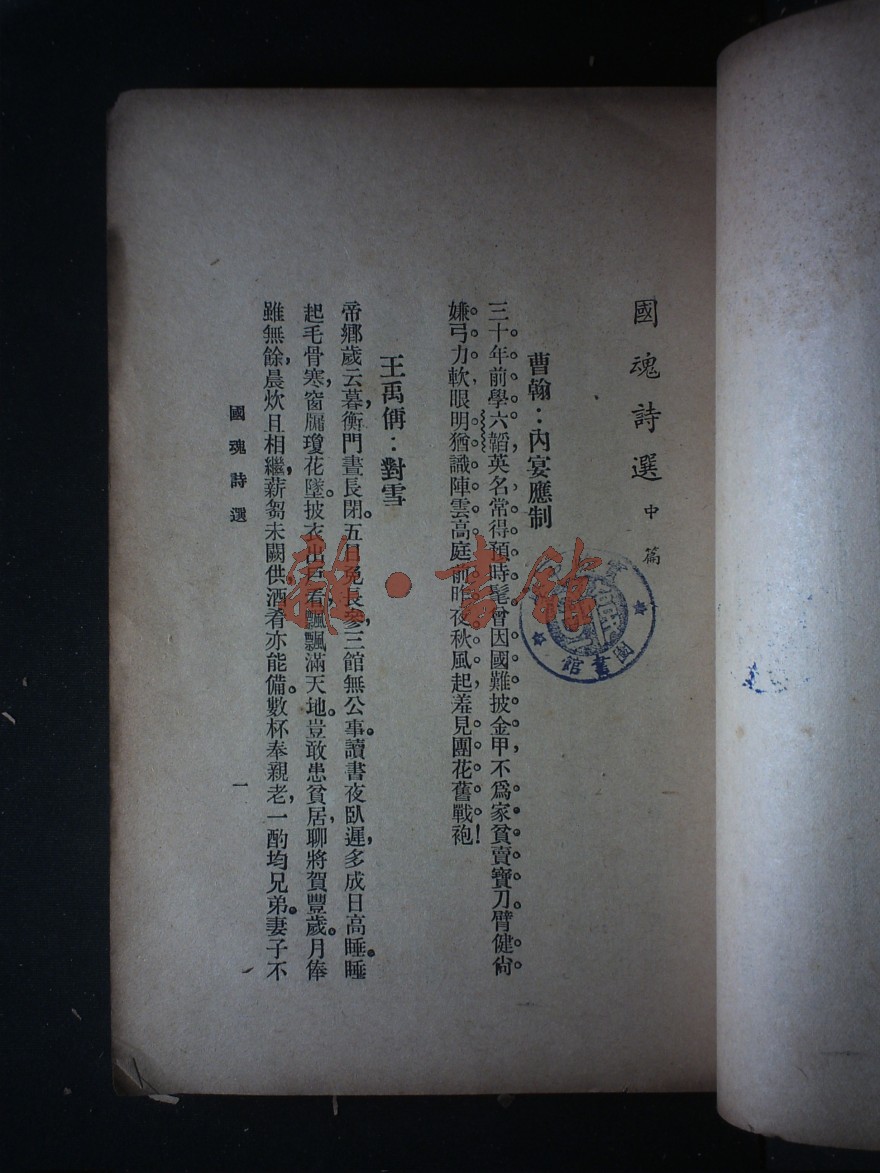 國魂詩選 中篇
曹翰：內宴應制
三十年前學六韜，英名常得預時髦。曾因國難披金甲，不爲家貧賣寶刀。臂健尙
嫌弓力軟，眼明猶識陣雲高。庭前昨夜秋風起，羞見團花舊戰袍！
王禹偁：對雪
帝鄉歲云暮，衡門晝長閉。五日免長參，三館無公事。讀書夜臥遲，多成日高睡。睡
起毛骨寒，窗牖瓊花墜。披衣出戶看，飄飄滿天地。豈敢患貧居，聊將賀豐歲。月俸
雖無餘，晨炊且相繼，薪芻未闕供，酒肴亦能備。數杯奉親老，一酌均兄弟。妻子不
國魂詩選
一
圖書館
龍·書館